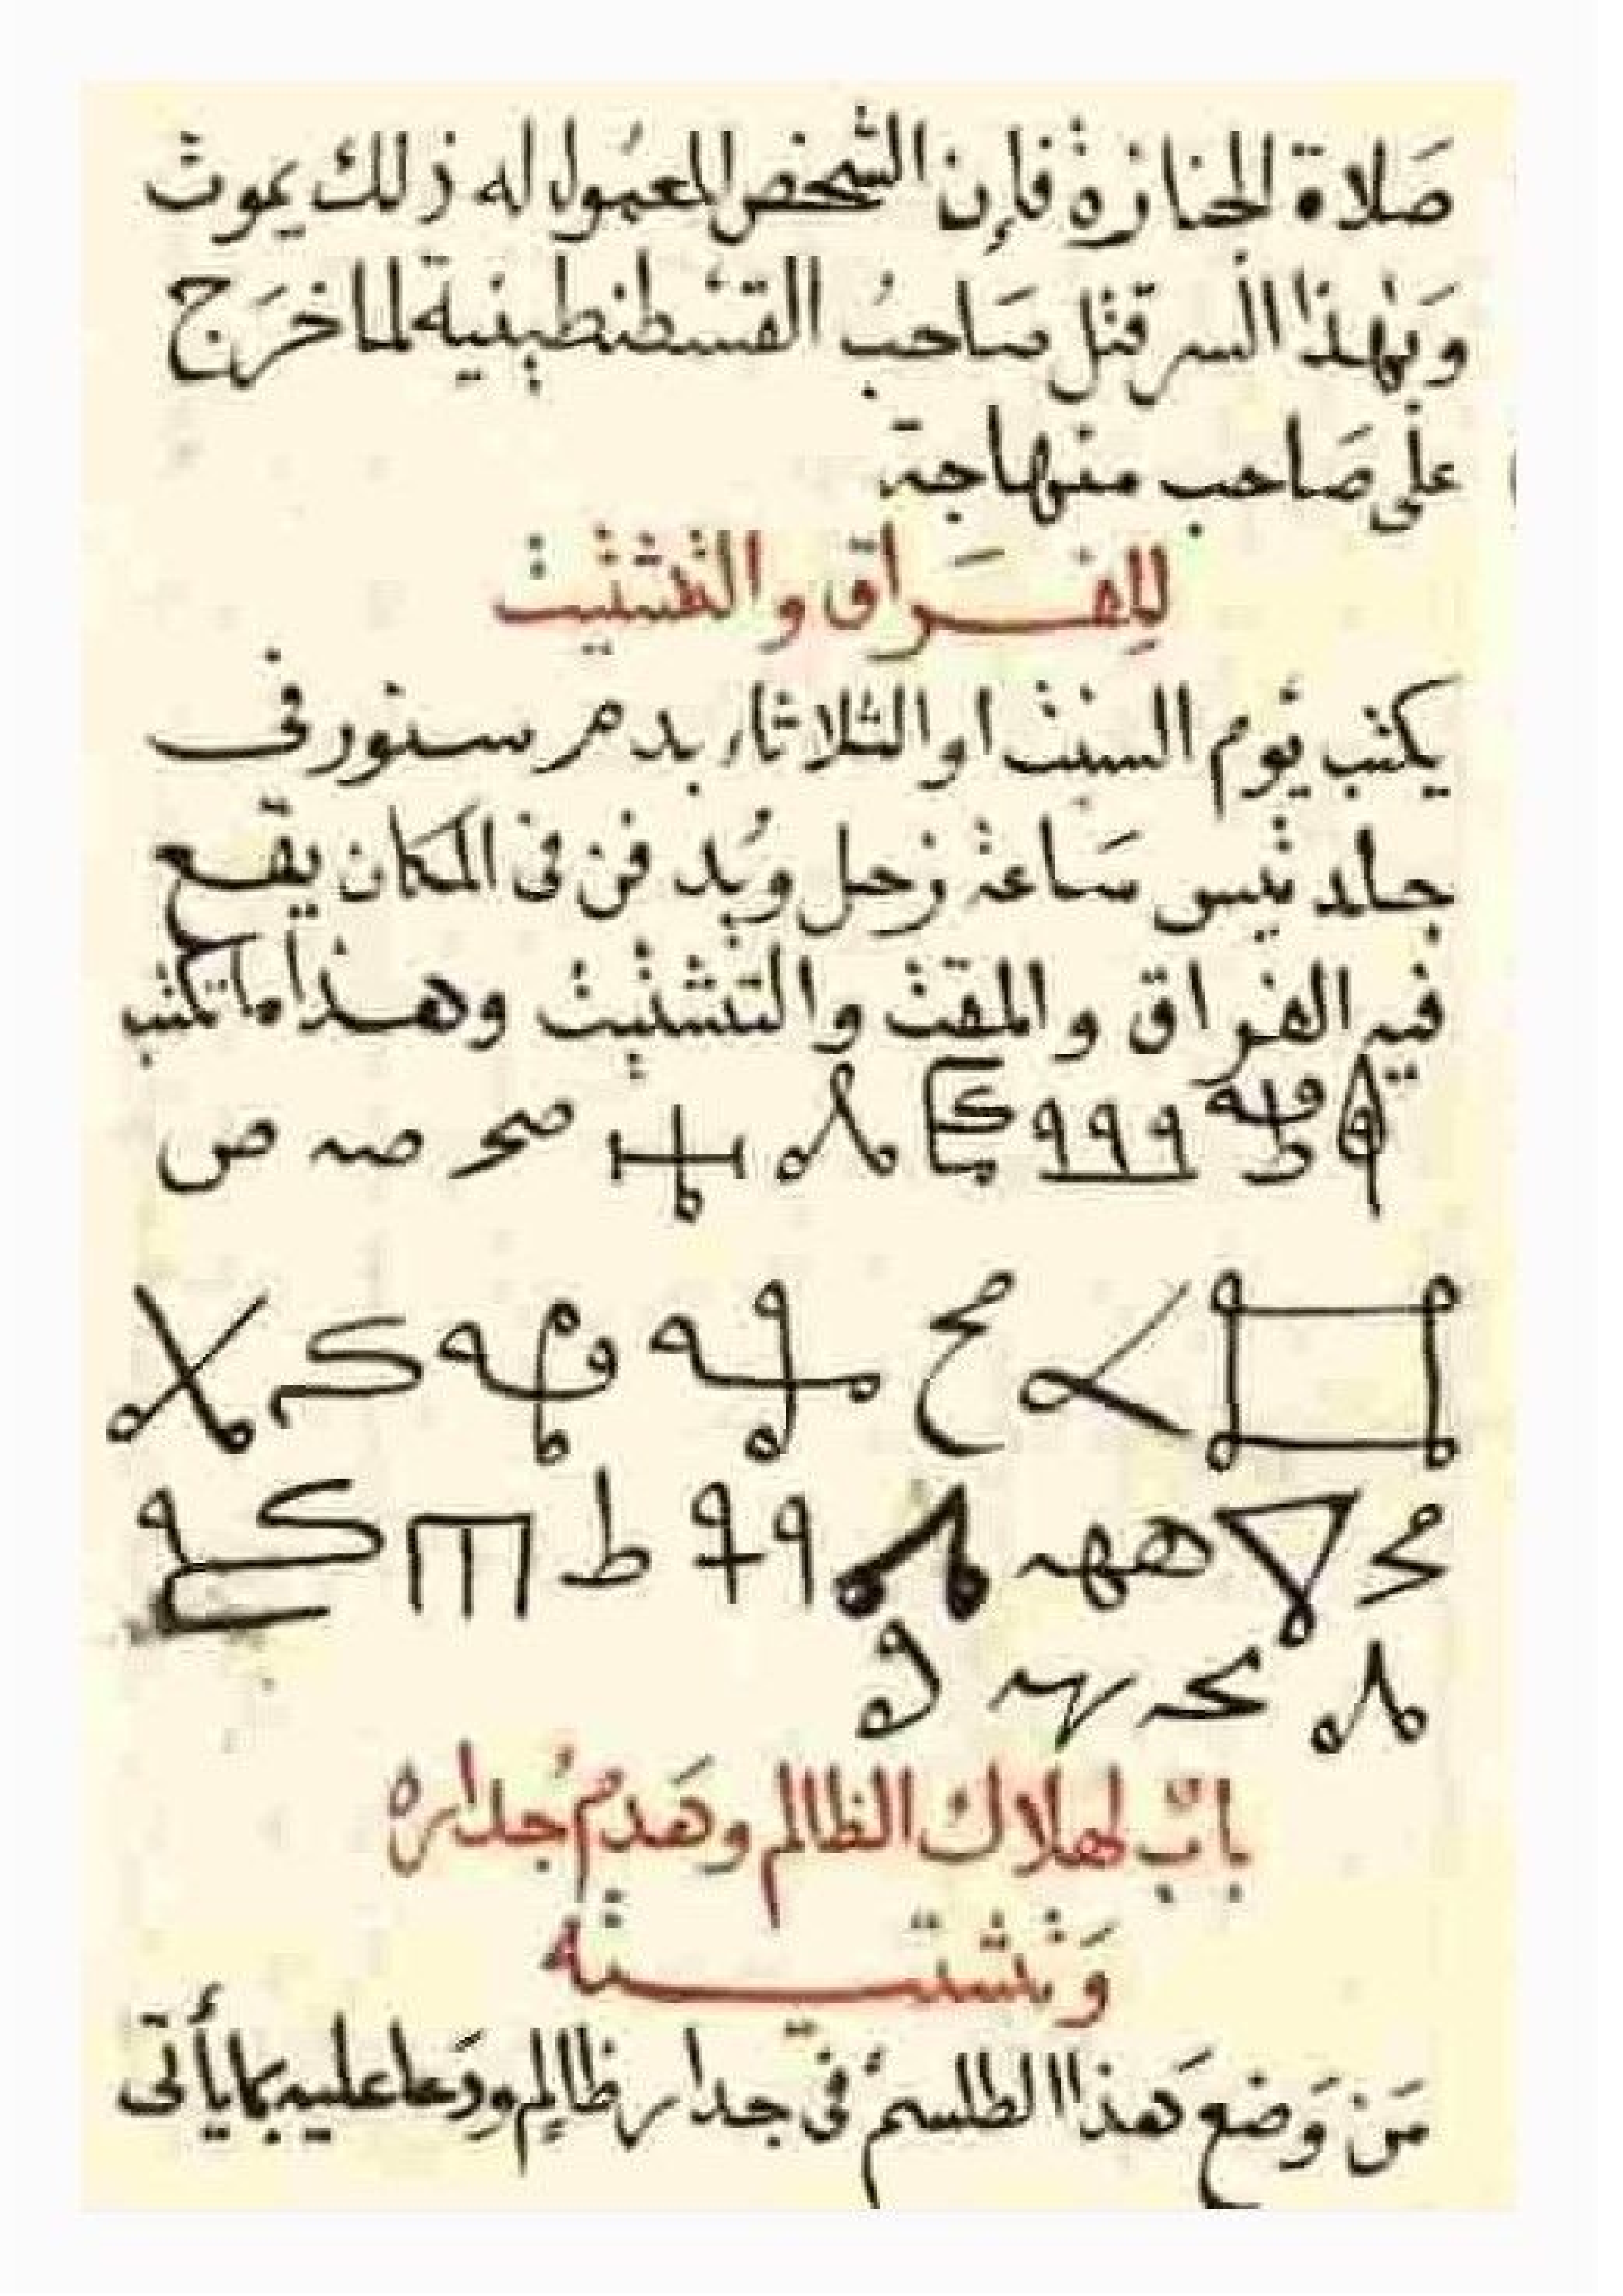 صَلاة الجنازة فإن الشخص المعمول له ذلك يموت
وَبهذا السر قتل صَاحبُ القسطنطينية لما خرَج
على صَاحب منهاجة
للِفَراق والتشتيت
يكتب يوم السبت او الثلاثاء بدم سنور في
جلد تيس سَاعة زحل ويُدفن في المكان يقع
فيه الفراق والمقت والتشتيت وهذا ما تكتب
بابٌ لهلاك الظالم وهَدم جُداره
وَتشتيته
مَن وَضع هَذا الطلسم في جدار ظالمٍ ودَعا عليه بما يأتى